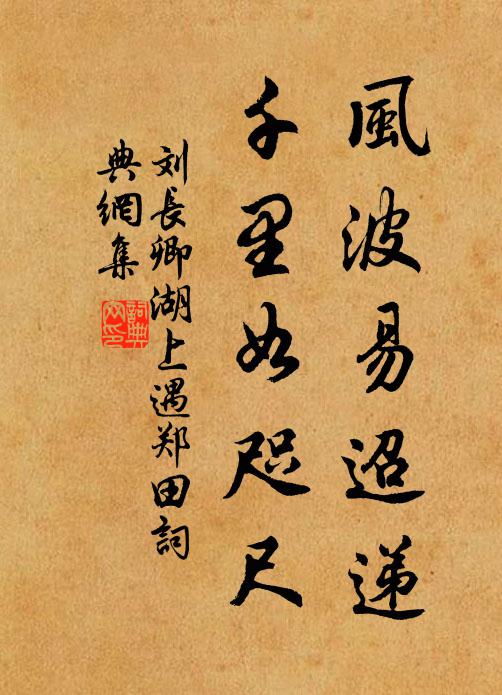 風波易迢递
千里如咫尺
刘長卿湖上遇郑田詞
典網集
詞典
网印